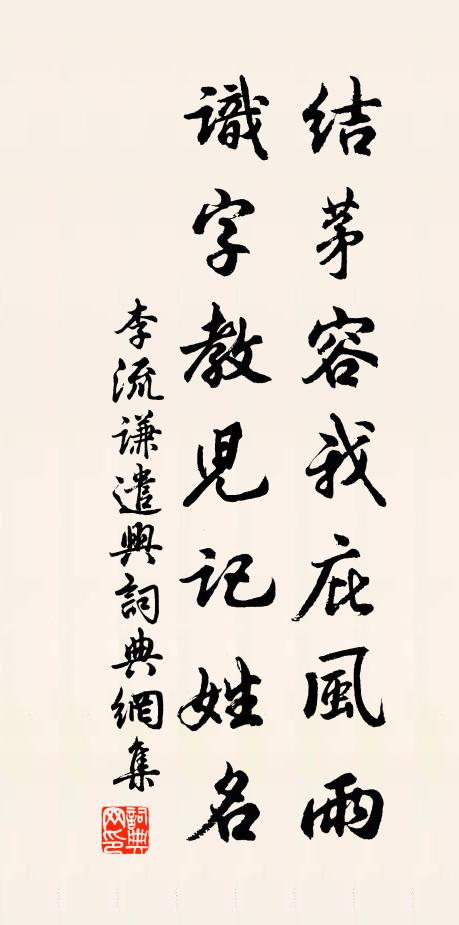 結茅容我庇風雨
識字教兒記姓名
李流謙遣興詞典網集
詞典網印